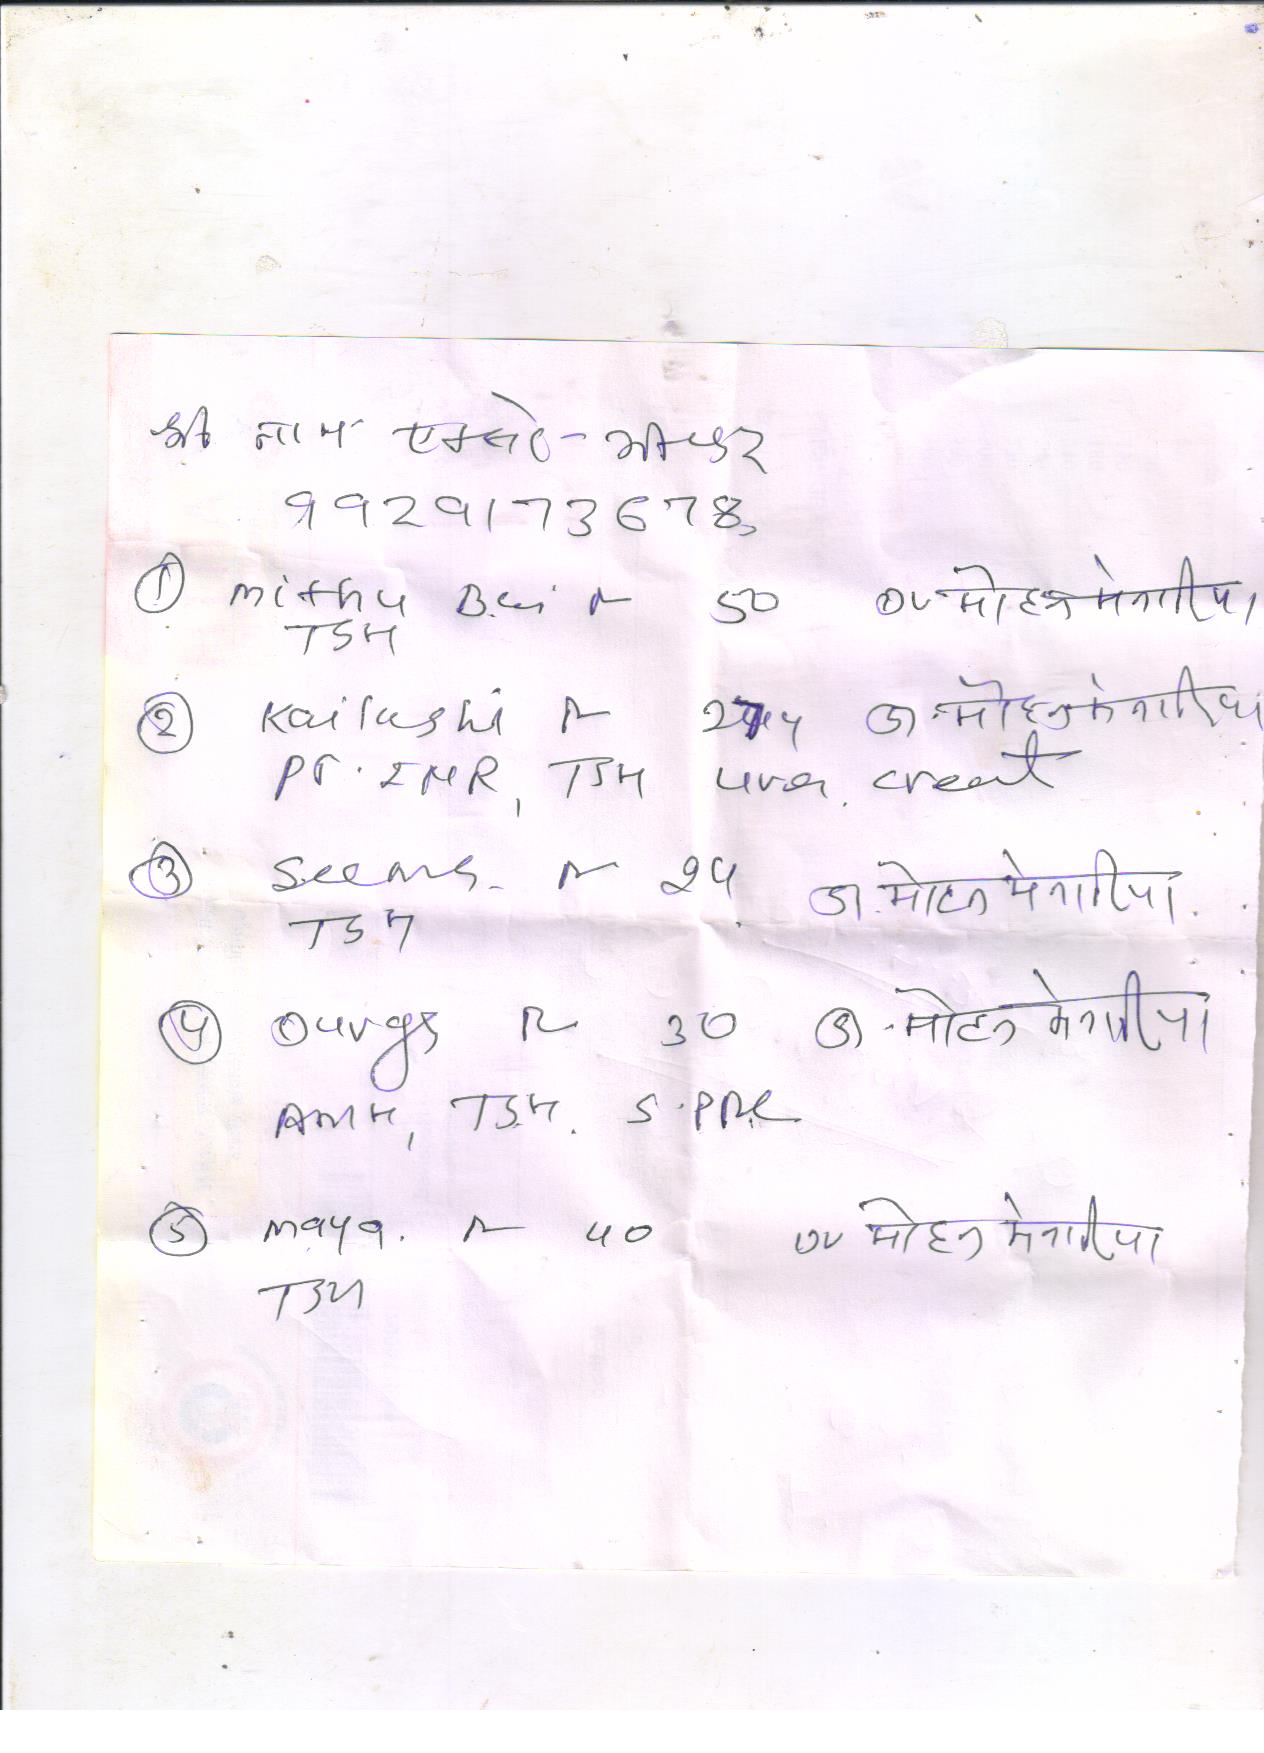 श्री नाथ
9929173678
① Mithu Bai 50 Dr मोहन मेनारिया
TSH
② Kailashi डा. मोहन मेनारिया
PT. INR, TSH urea, creat
③ Seema 24 डा. मोहन मेनारिया
TSH
④ Durga 30 डा. मोहन मेनारिया
AMH, TSH. S. PRL
⑤ Maya. 40 Dr मोहन मेनारिया
TSH